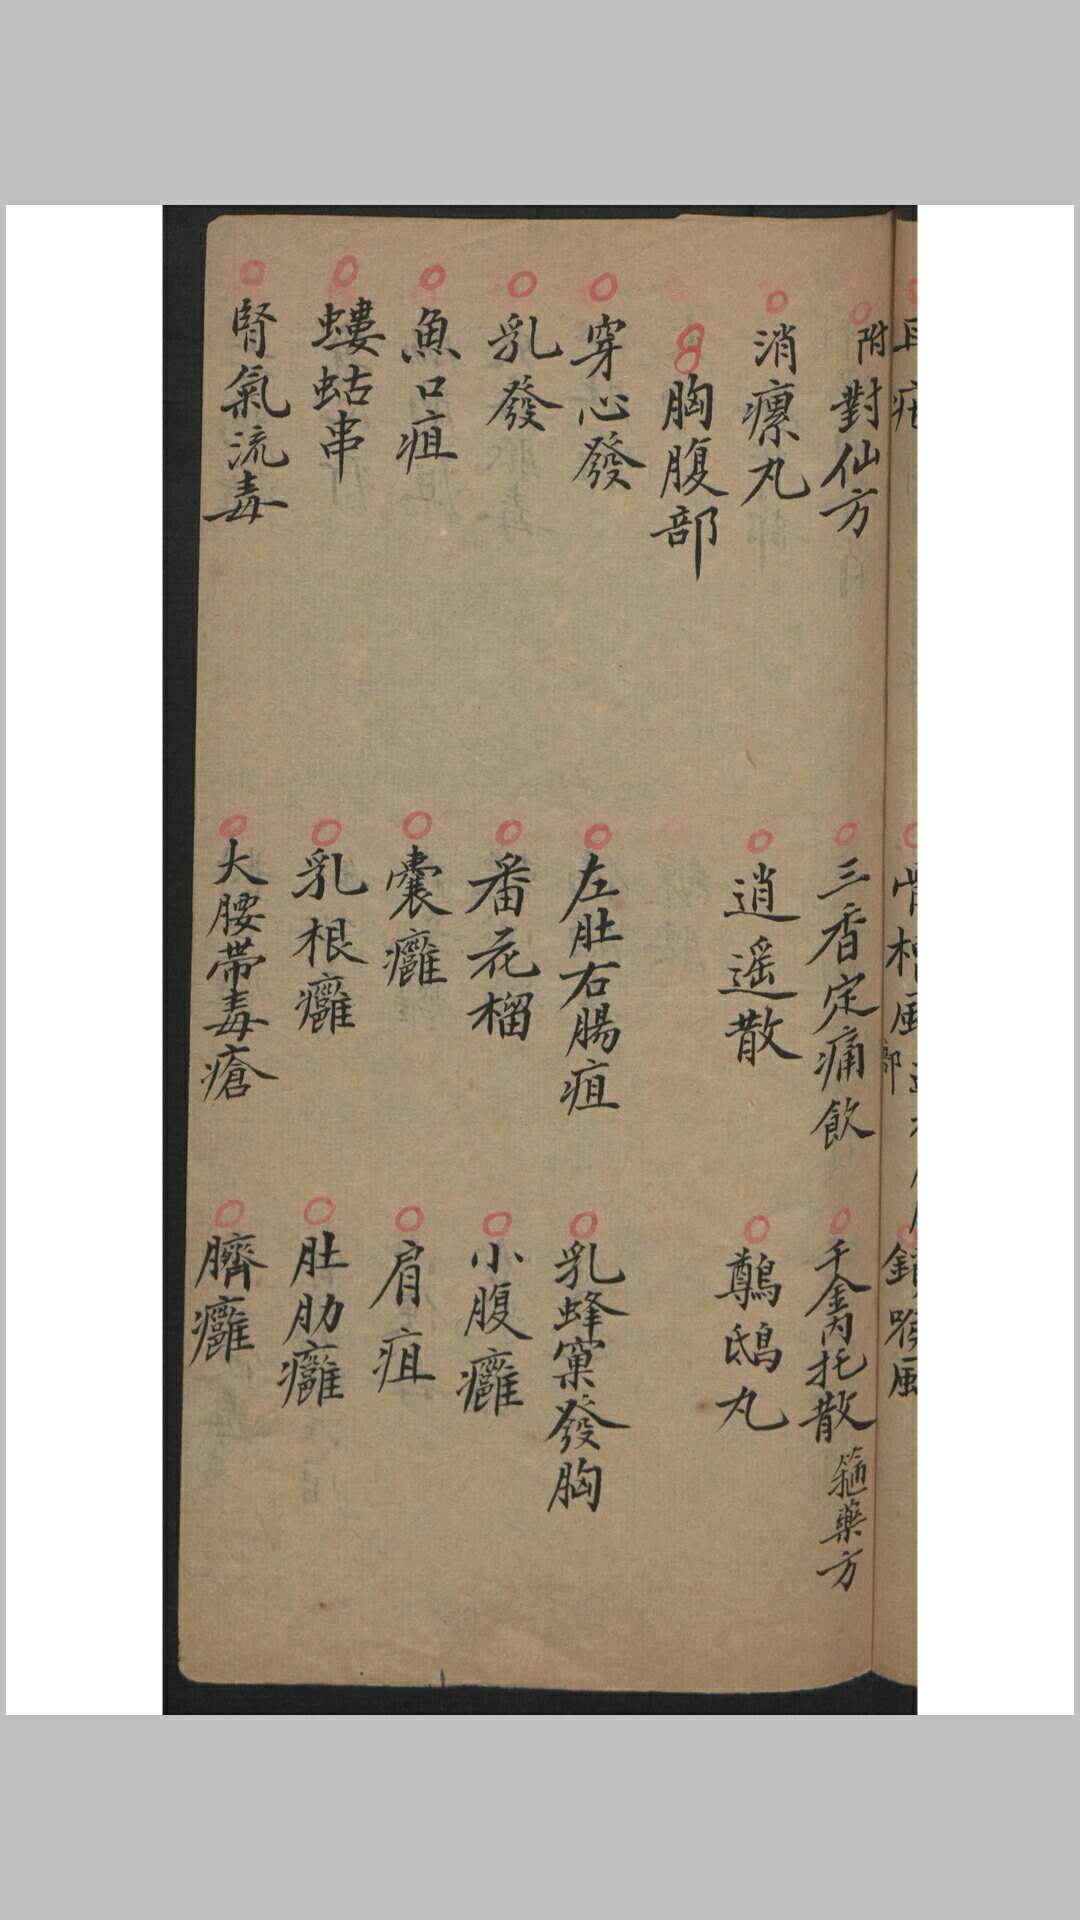 附對仙方 三香定痛飲 千金內托散 箍藥方
消瘰丸 逍遥散 鷓鴣丸
胸腹部
穿心發 左肚右腸疽 乳蜂窠發胸
乳發 番花榴 小腹癰
魚口疽 囊癰 肩疽
螻蛄串 乳根癰 肚肋癰
腎氣流毒 大腰帶毒瘡 臍癰